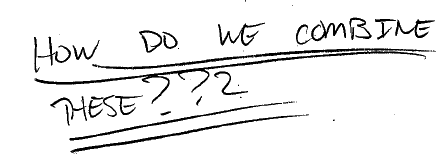 HOW DO WE COMBINE
THESE???